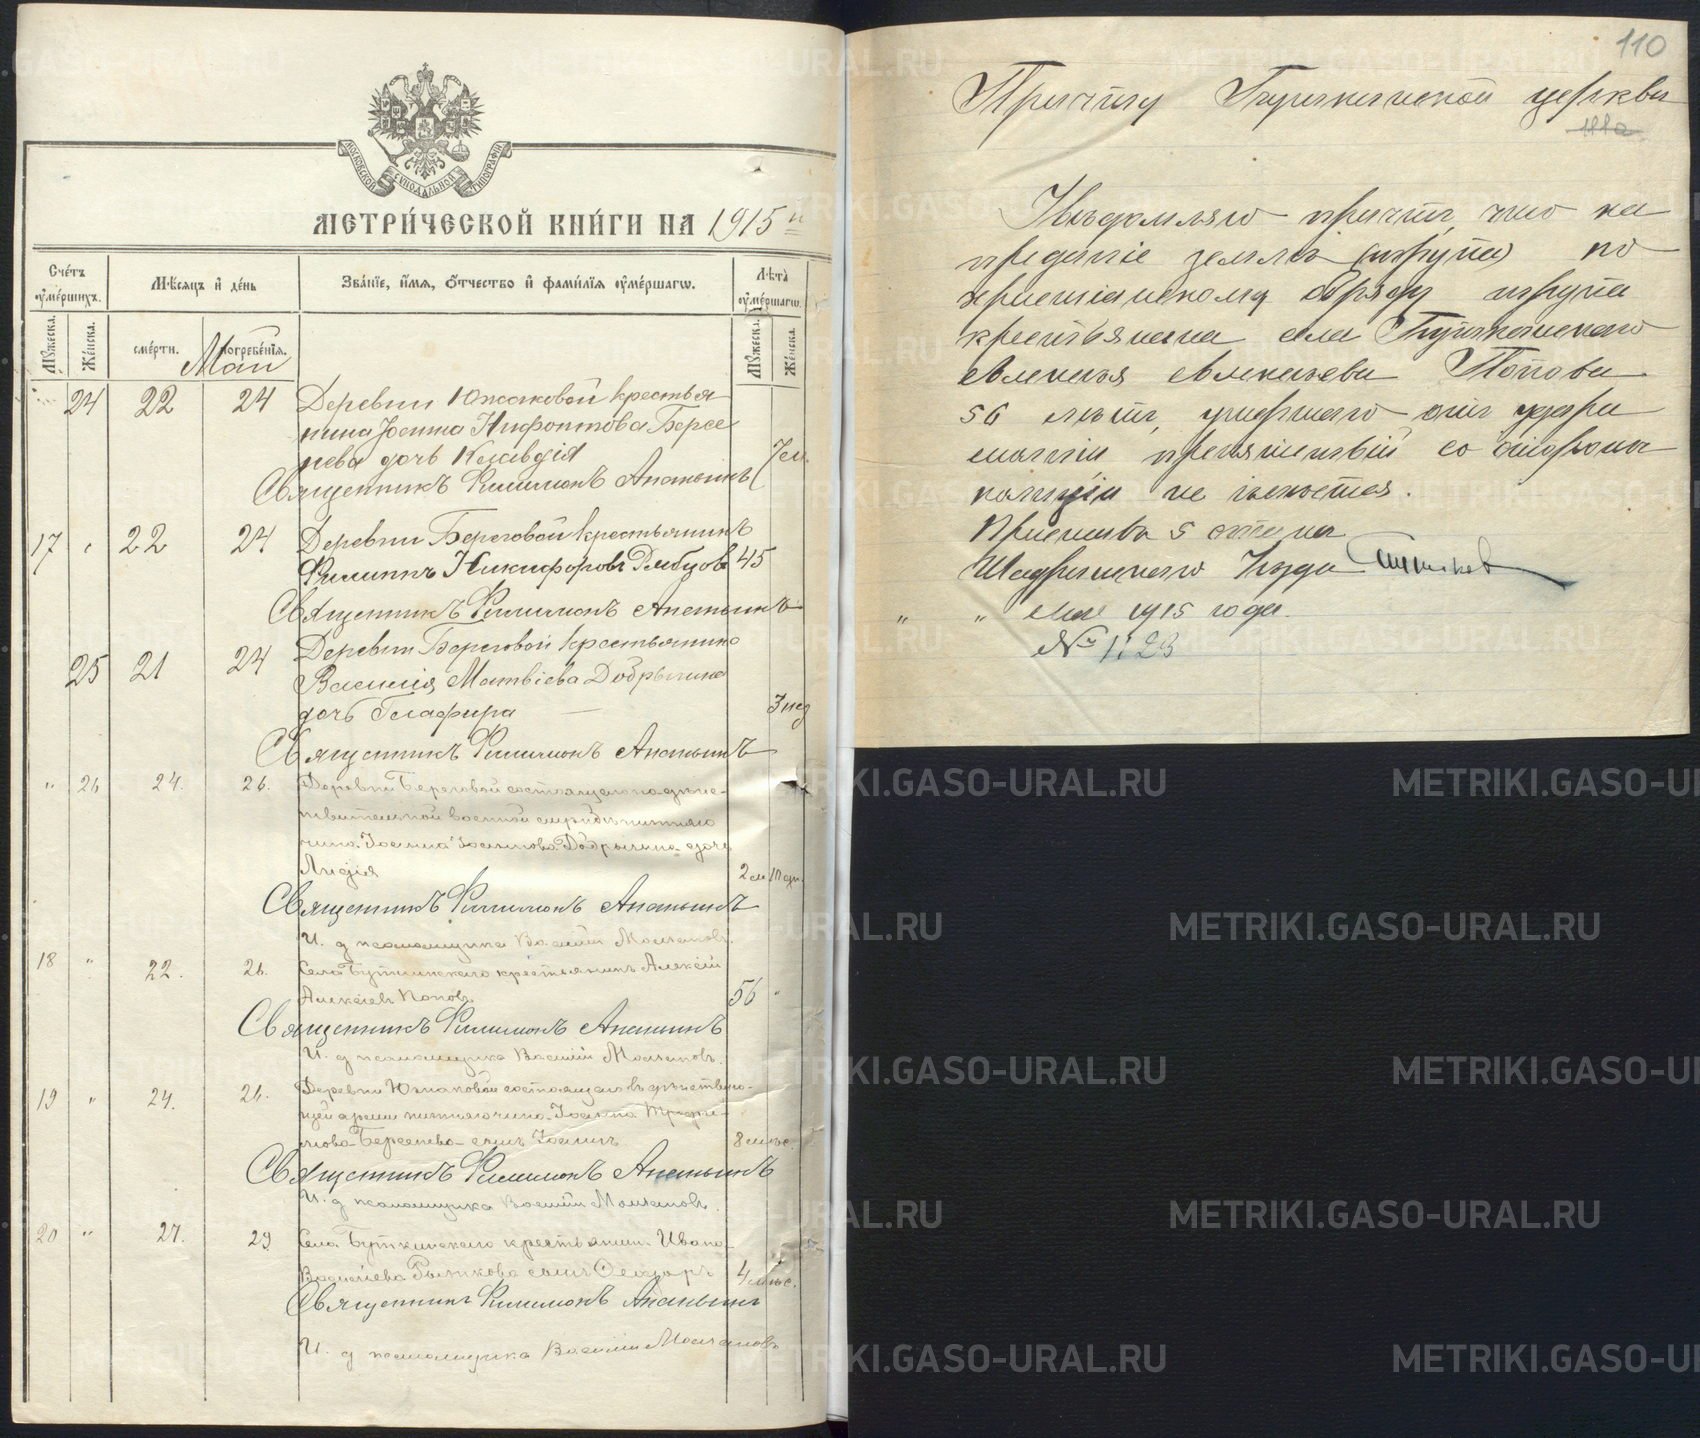 МОСКОВСКОЙ СѴНОДАЛЬНОЙ ТИПОГРАФІИ
МЕТРИ́ЧЕСКОЙ КНИ́ГИ НА 1915 й
Сче́тъ ᲂу҆ме́ршихъ.
Мꙋ́жеска. Же́нска.
Мѣ́сяцъ и҆ де́нь
сме́рти. погребе́нія.
Май
Зва́ніе, и҆́мя, ѻ҆́тчество и҆ фами́лія ᲂу҆ме́ршагѡ.
Лѣ́та ᲂу҆ме́ршагѡ.
Мꙋ́жеска. Же́нска.
24 22 24 Деревни Южаковой крестья
нина Іоанна Нифонтова Берсе
нева дочь Клавдія 7 м.
Священникъ Филимонъ Ананьинъ
17 " 22 24 Деревни Береговой крестьянинъ
Филиппъ Никифоровъ 45
Священникъ Филимонъ Ананьинъ
25 21 24 Деревни Береговой крестьянина
Василія Матвіева Добрынина
дочь Глафира 3 нед
Священникъ Филимонъ Ананьинъ
" 26 24. 26. Деревни Береговой состоящаго на дѣйс-
твительной военной службѣ нижняго
чина Іоанна Іоаннова Добрынина дочь
Лидія 2 м 10 дн.
Священникъ Филимонъ Ананьинъ
И. д псаломщика Василій Молчановъ.
18 " 22. 26. Села Буткинскаго крестьянинъ Алексій
Алексіевъ Поповъ 56 "
Священникъ Филимонъ Ананьинъ
И. д псаломщика Василій Молчановъ.
19 " 24. 26. Деревни Южаковой состоящаго въ дѣйствую-
щей арміи нижняго чина Іоанна
Берсенева сынъ Іоаннъ 8 мѣс.
Священникъ Филимонъ Ананьинъ
И. д псаломщика Василій Молчановъ.
20 " 27. 29 Села Буткинскаго крестьянин. Ивана
Василіева Рычкова сынъ Ѳеодоръ 4 мѣс.
Священникъ Филимонъ Ананьинъ
И. д псаломщика Василій Молчановъ
110
Причту Буткинской церкви
Увѣдомляю причтъ, что на
преданіе землѣ (трупа) по
христіанскому обряду трупа
крестьянина села Буткинскаго
Алексѣя Алексѣева Попова
56 лѣтъ, умершаго отъ удара
молніи, препятствій со стороны
полиціи не имѣется.
Приставъ 5 стана
Шадринскаго уѣзда
" " Мая 1915 года.
№ 1123
METRIKI.GASO-URAL.RU